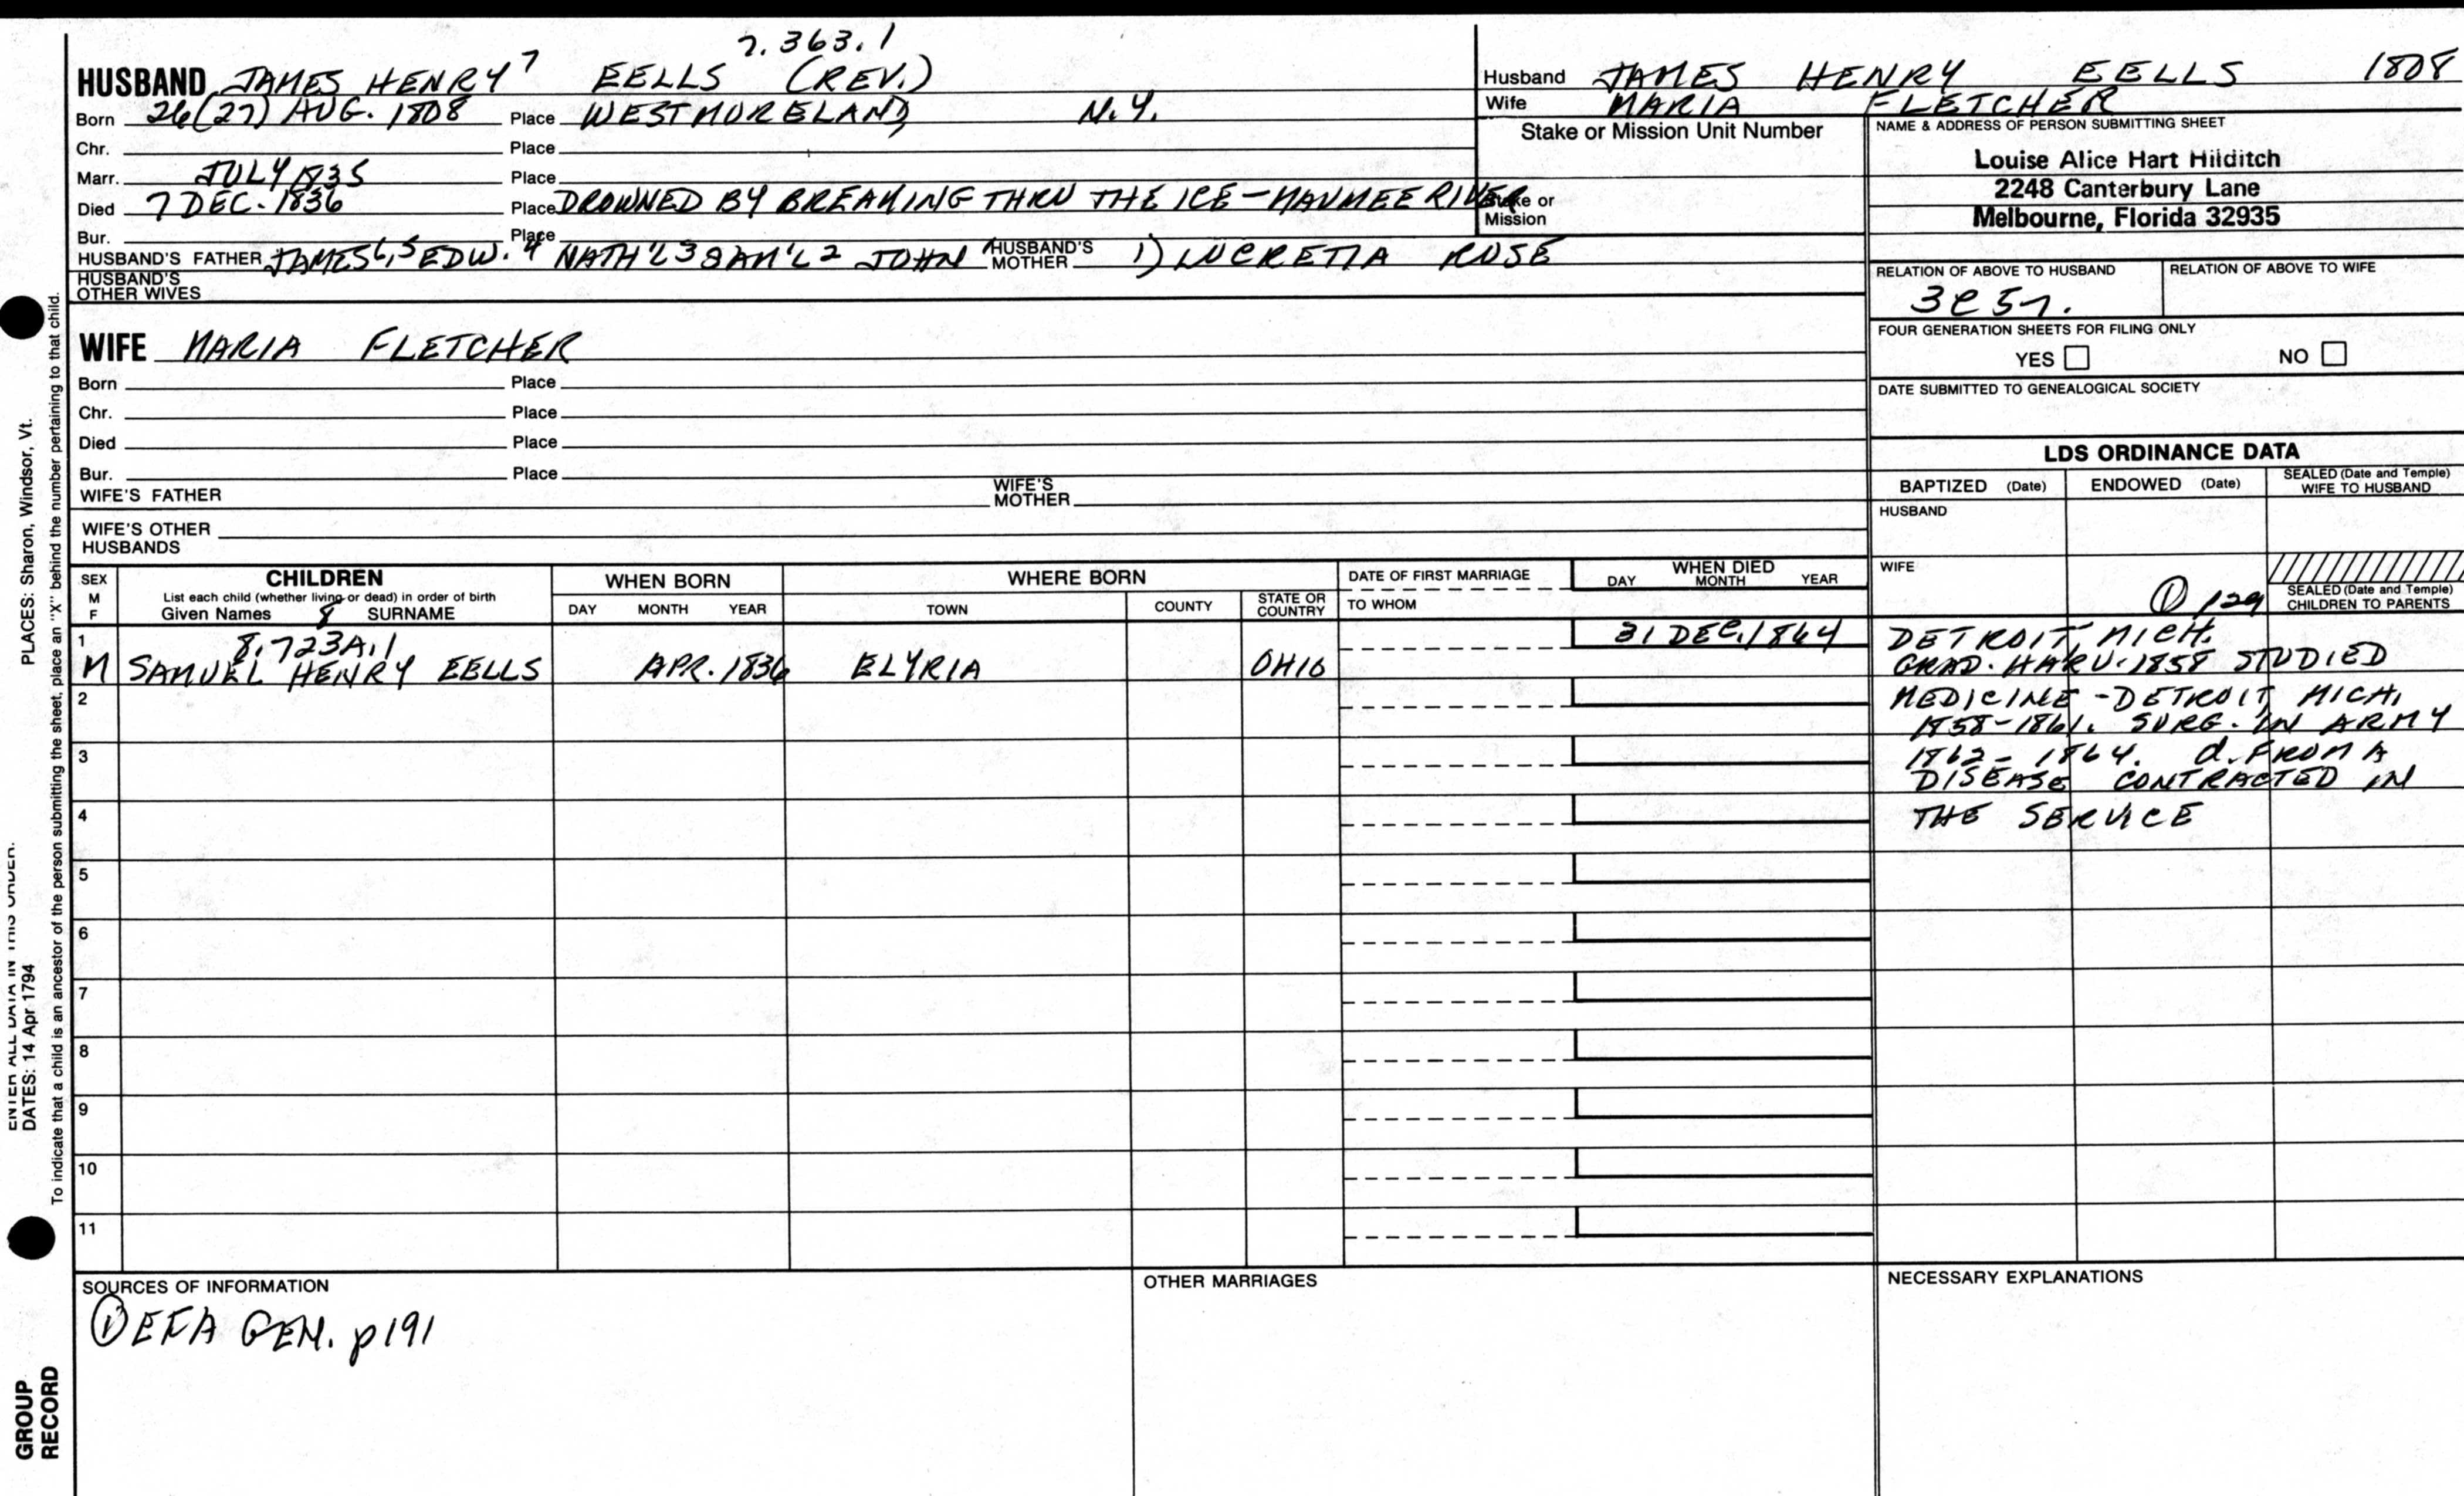 7.363.1
HUSBAND JAMES HENRY 7 EELLS (REV.)
Born 26(27) AUG. 1808 Place WESTMORELAND N.Y.
Chr. Place
Marr. JULY 1835 Place
Died 7 DEC. 1836 Place DROWNED BY BREAKING THRU THE ICE - MAUMEE RIVER
Bur. Place
HUSBAND'S FATHER JAMES 6, 5 EDW. 4 NATH'L 3 SAM'L 2 JOHN 1 HUSBAND'S MOTHER 1) LUCRETIA ROSE
HUSBAND'S OTHER WIVES
Husband JAMES HENRY EELLS 1808
Wife MARIA FLETCHER
Stake or Mission Unit Number
Stake or Mission
NAME & ADDRESS OF PERSON SUBMITTING SHEET
Louise Alice Hart Hilditch
2248 Canterbury Lane
Melbourne, Florida 32935
RELATION OF ABOVE TO HUSBAND RELATION OF ABOVE TO WIFE
3C5r.
FOUR GENERATION SHEETS FOR FILING ONLY
YES NO
DATE SUBMITTED TO GENEALOGICAL SOCIETY
WIFE MARIA FLETCHER
Born Place
Chr. Place
Died Place
Bur. Place
WIFE'S FATHER WIFE'S MOTHER
WIFE'S OTHER HUSBANDS
LDS ORDINANCE DATA
BAPTIZED (Date) ENDOWED (Date) SEALED (Date and Temple) WIFE TO HUSBAND
HUSBAND
WIFE
① 129
SEALED (Date and Temple) CHILDREN TO PARENTS
SEX M F
CHILDREN
List each child (whether living or dead) in order of birth
Given Names 8 SURNAME
WHEN BORN
DAY MONTH YEAR
WHERE BORN
TOWN COUNTY STATE OR COUNTRY
DATE OF FIRST MARRIAGE
TO WHOM
WHEN DIED
DAY MONTH YEAR
1
8.723A.1
M SAMUEL HENRY EELLS APR. 1836 ELYRIA OHIO 31 DEC. 1864
DETROIT, MICH.
GRAD. HARV. 1858 STUDIED
MEDICINE - DETROIT, MICH.
1858-1861. SURG. IN ARMY
1862-1864. d. FROM A
DISEASE CONTRACTED IN
THE SERVICE
2
3
4
5
6
7
8
9
10
11
SOURCES OF INFORMATION
① EFA GEN. p191
OTHER MARRIAGES
NECESSARY EXPLANATIONS
ENTER ALL DATA IN THIS ORDER:
DATES: 14 Apr 1794
PLACES: Sharon, Windsor, Vt.
To indicate that a child is an ancestor of the person submitting the sheet, place an "X" behind the number pertaining to that child.
GROUP
RECORD